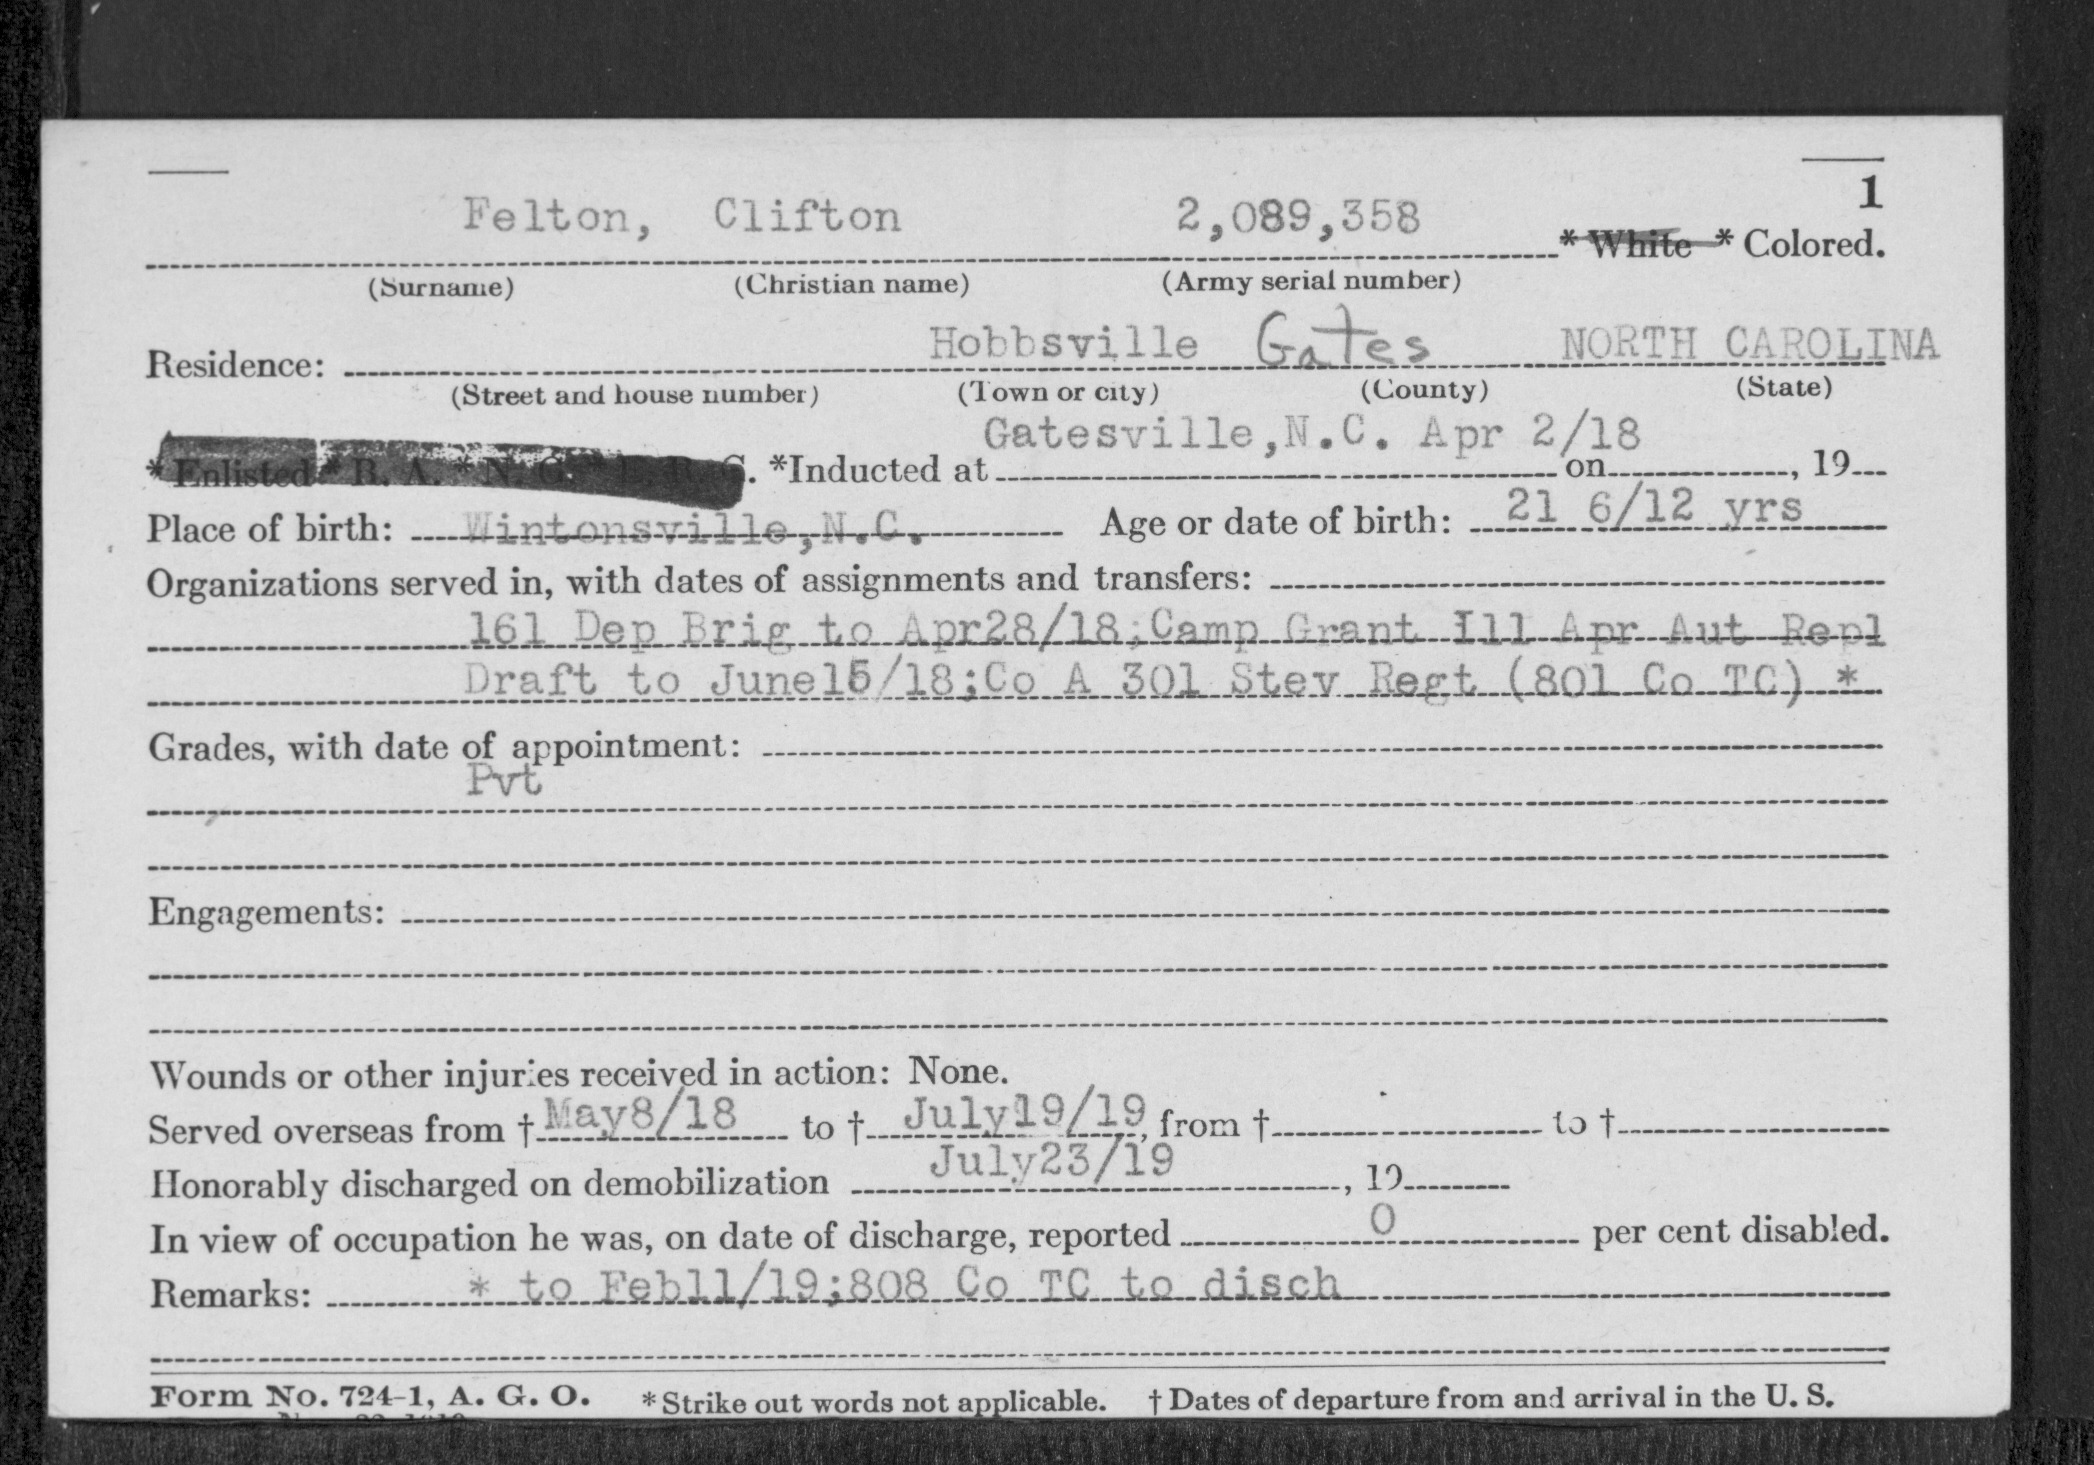 1
Felton, Clifton 2,089,358 * White * Colored.
(Surname) (Christian name) (Army serial number)
Residence: Hobbsville Gates NORTH CAROLINA
(Street and house number) (Town or city) (County) (State)
Gatesville,N.C. Apr 2/18
* Enlisted * R. A. * N. G. * E. R. C. *Inducted at on , 19
Place of birth: Wintonsville,N.C. Age or date of birth: 21 6/12 yrs
Organizations served in, with dates of assignments and transfers:
161 Dep Brig to Apr28/18;Camp Grant Ill Apr Aut Repl
Draft to June15/18;Co A 301 Stev Regt (801 Co TC) *
Grades, with date of appointment:
Pvt
Engagements:
Wounds or other injuries received in action: None.
Served overseas from † May8/18 to † July19/19, from † to †
Honorably discharged on demobilization July23/19, 19
In view of occupation he was, on date of discharge, reported 0 per cent disabled.
Remarks: * to Feb11/19;808 Co TC to disch
Form No. 724-1, A. G. O. * Strike out words not applicable. † Dates of departure from and arrival in the U. S.